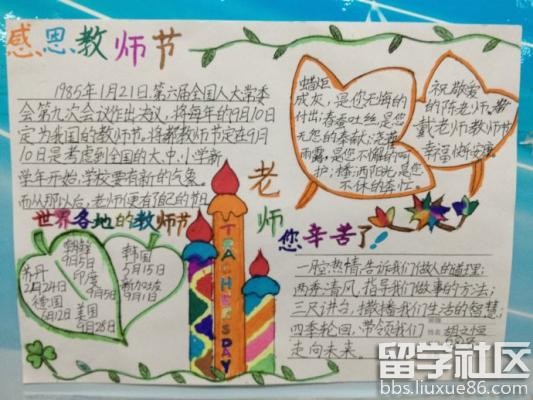 感恩教师节
1985年1月21日,第六届全国人大常委
会第九次会议作出决议,将每年的9月10日
定为我国的教师节,将教师节定在9月
10日是考虑到全国的大、中、小学新
学年开始,学校要有新的气象。
而从那以后,老师便有了自己的节日
蜡炬
成灰,是您无悔的
付出;春蚕吐丝,是您
无怨的奉献;
雨露,是您不懈的呵
护;播洒阳光,是您
不休的奉忙
祝敬爱
的陈老师、戴
戴老师教师节
幸福快乐安康
世界各地的教师节
朝鲜
9月5日
印度
9月5日
苏丹
2月24日
德国
6月12日
美国
9月28日
韩国
5月15日
新加坡
9月1日
TEACHER'S DAY
老师
您辛苦了!
一腔热情,告诉我们做人的道理;
两季清风,指导我们做事的方法;
三尺讲台,撒播我们生活的智慧;
四季轮回,带领我们
走向未来。
留学社区
bbs.liuxue86.com